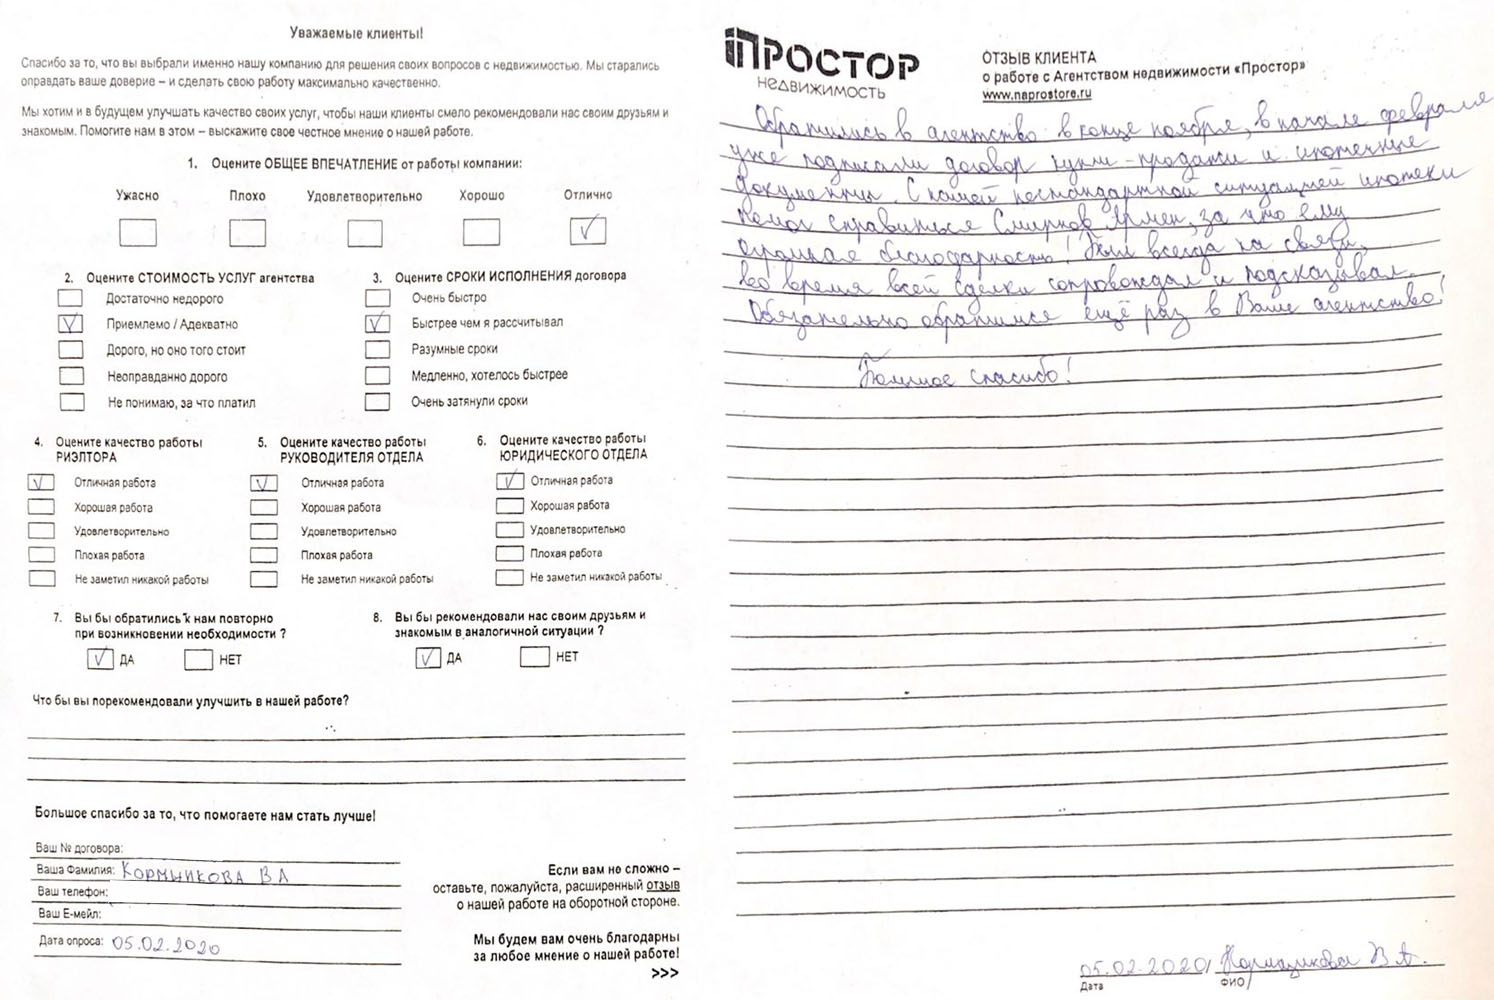 Уважаемые клиенты!
Спасибо за то, что вы выбрали именно нашу компанию для решения своих вопросов с недвижимостью. Мы старались
оправдать ваше доверие – и сделать свою работу максимально качественно.
Мы хотим и в будущем улучшать качество своих услуг, чтобы наши клиенты смело рекомендовали нас своим друзьям и
знакомым. Помогите нам в этом – выскажите свое честное мнение о нашей работе.
1. Оцените ОБЩЕЕ ВПЕЧАТЛЕНИЕ от работы компании:
Ужасно Плохо Удовлетворительно Хорошо Отлично
2. Оцените СТОИМОСТЬ УСЛУГ агентства
Достаточно недорого
Приемлемо / Адекватно
Дорого, но оно того стоит
Неоправданно дорого
Не понимаю, за что платил
3. Оцените СРОКИ ИСПОЛНЕНИЯ договора
Очень быстро
Быстрее чем я рассчитывал
Разумные сроки
Медленно, хотелось быстрее
Очень затянули сроки
4. Оцените качество работы
РИЭЛТОРА
Отличная работа
Хорошая работа
Удовлетворительно
Плохая работа
Не заметил никакой работы
5. Оцените качество работы
РУКОВОДИТЕЛЯ ОТДЕЛА
Отличная работа
Хорошая работа
Удовлетворительно
Плохая работа
Не заметил никакой работы
6. Оцените качество работы
ЮРИДИЧЕСКОГО ОТДЕЛА
Отличная работа
Хорошая работа
Удовлетворительно
Плохая работа
Не заметил никакой работы
7. Вы бы обратились к нам повторно
при возникновении необходимости ?
ДА НЕТ
8. Вы бы рекомендовали нас своим друзьям и
знакомым в аналогичной ситуации ?
ДА НЕТ
Что бы вы порекомендовали улучшить в нашей работе?
Большое спасибо за то, что помогаете нам стать лучше!
Ваш № договора:
Ваша Фамилия: КОРМЩИКОВА В А
Ваш телефон:
Ваш Е-мейл:
Дата опроса: 05.02.2020
Если вам не сложно –
оставьте, пожалуйста, расширенный отзыв
о нашей работе на оборотной стороне.
Мы будем вам очень благодарны
за любое мнение о нашей работе!
>>>
ПРОСТОР
НЕДВИЖИМОСТЬ
ОТЗЫВ КЛИЕНТА
о работе с Агентством недвижимости «Простор»
www.naprostore.ru
Обратились в агентство в конце ноября, в начале февраля
уже подписали договор купли-продажи и ипотечные
документы. С нашей нестандартной ситуацией ипотеки
помог справиться Смирнов Армен, за что ему
огромная благодарность! Был всегда на связи,
во время всей сделки сопровождал и подсказывал.
Обязательно обратимся ещё раз в Ваше агентство!
Большое спасибо!
05.02.2020/ Кормщикова В А.
Дата ФИО